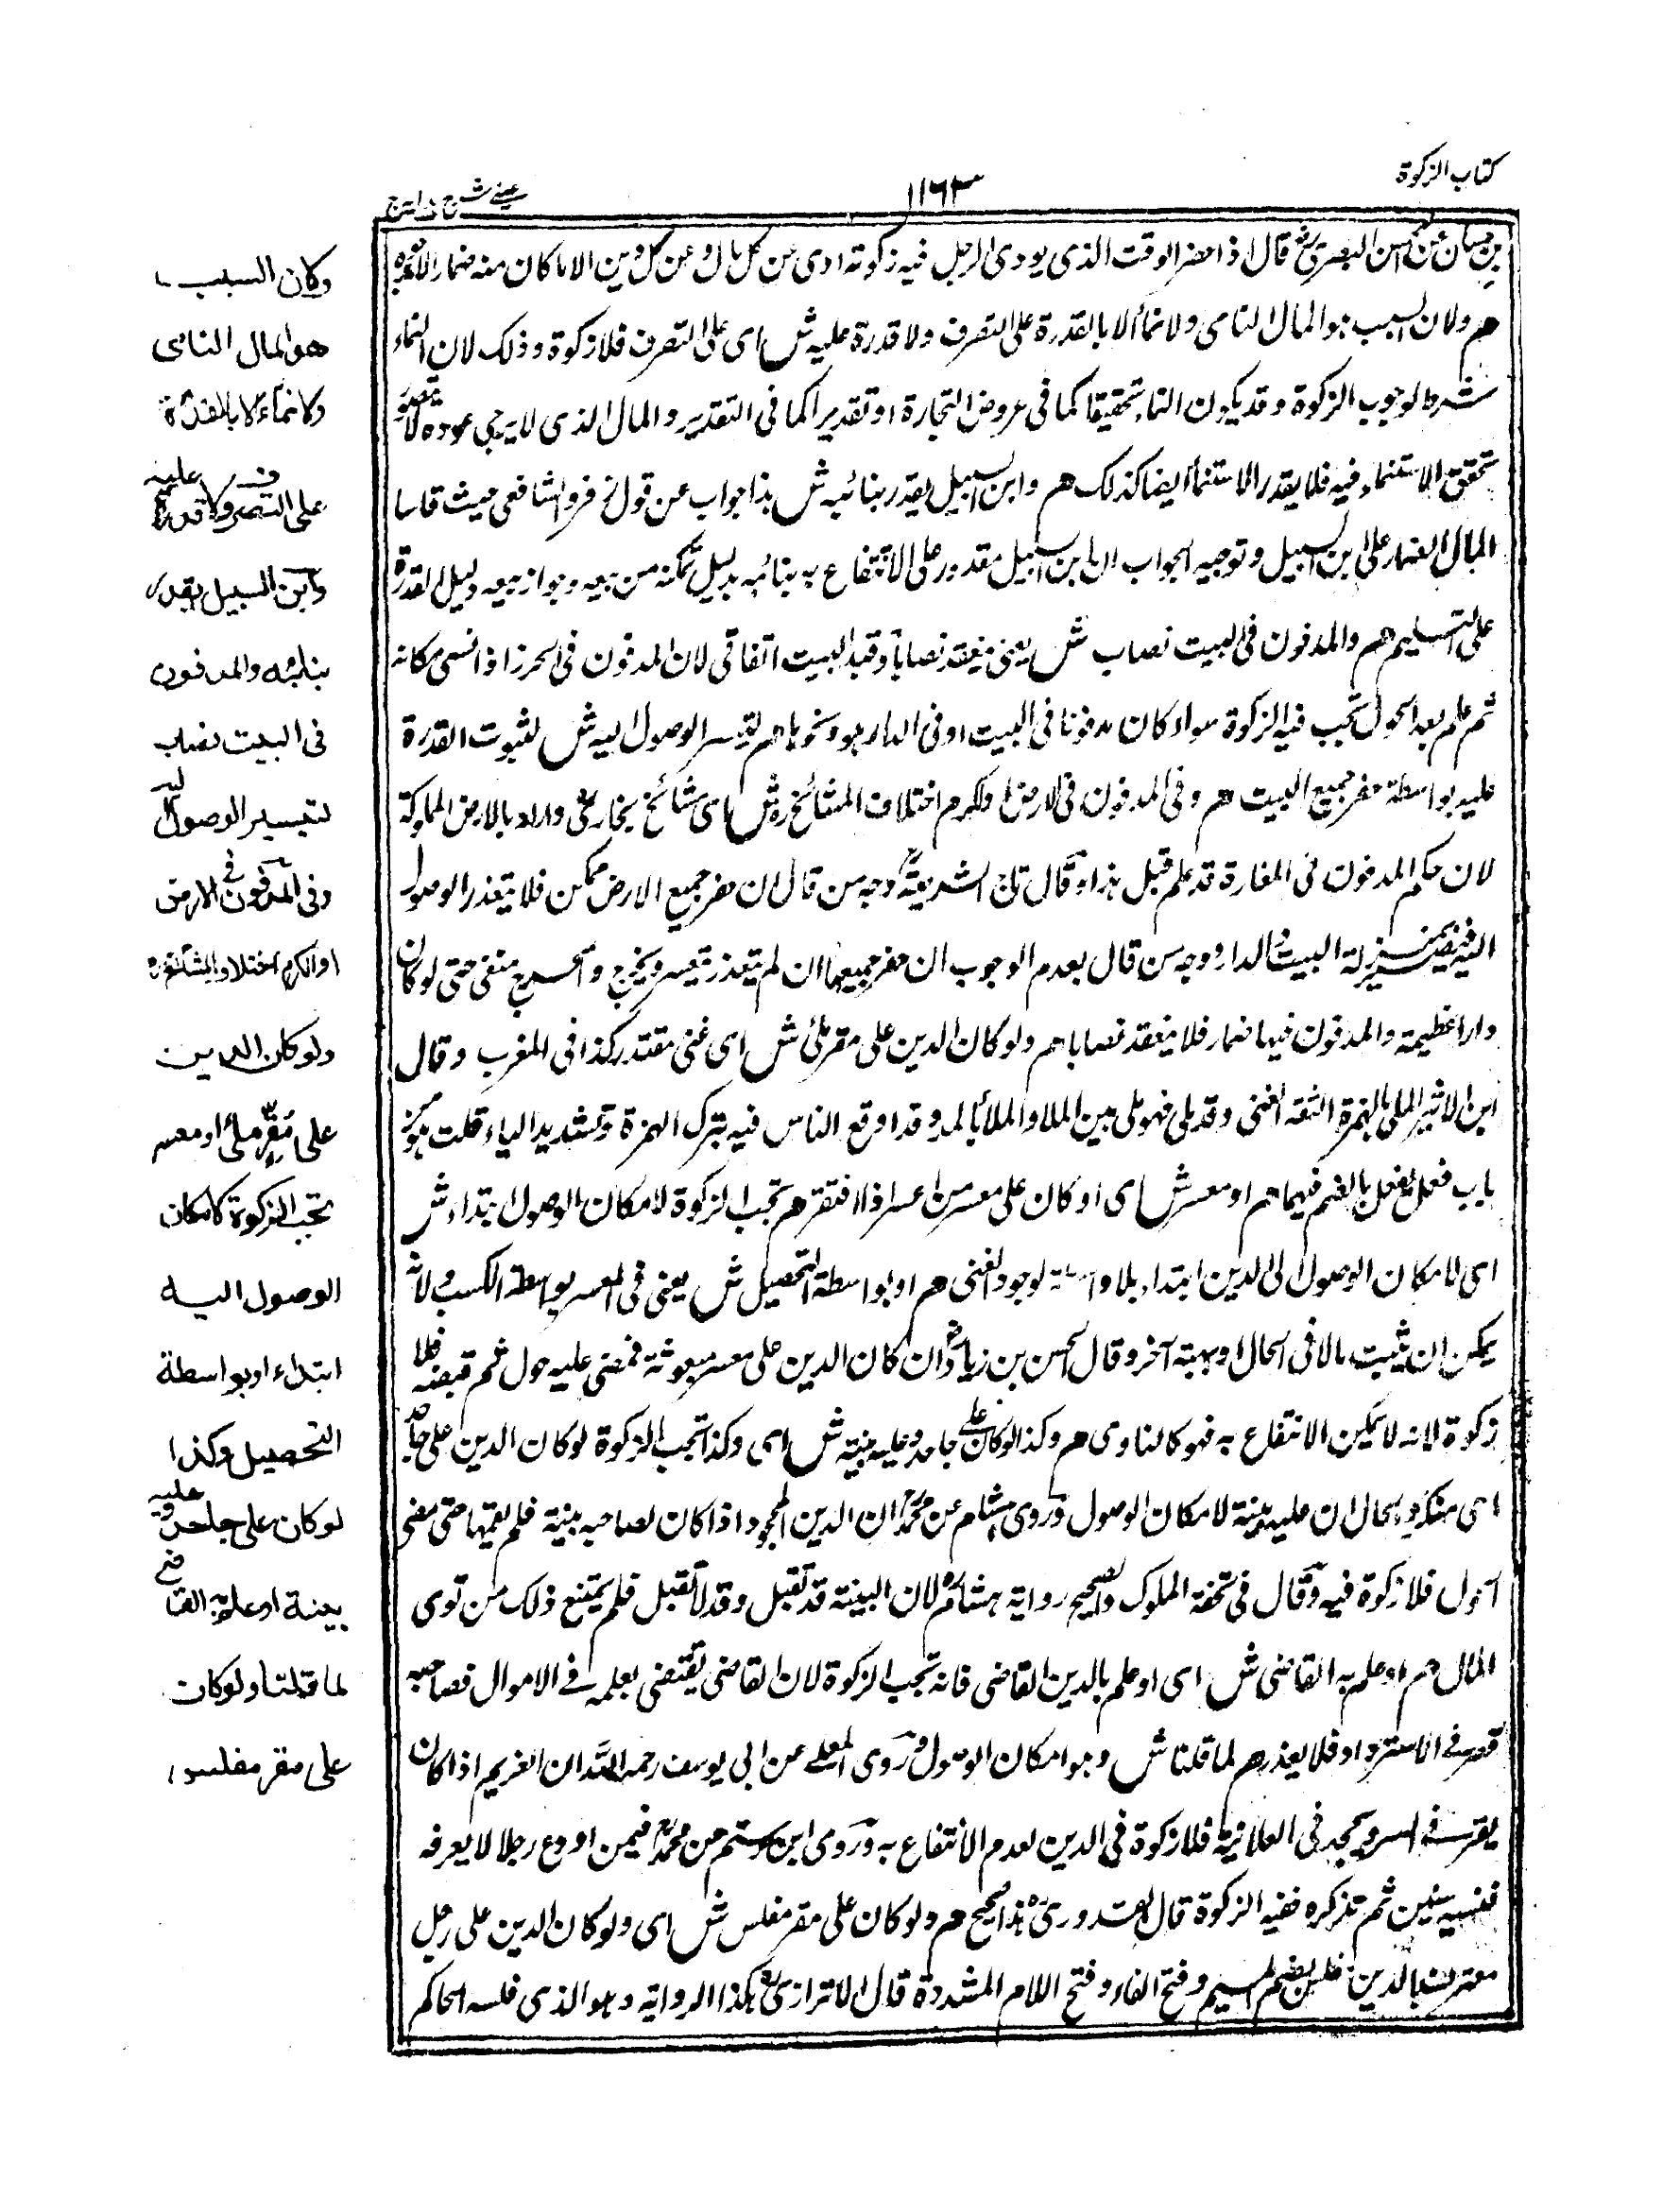 كتاب الزكوة
١١٦٣
عينى شرح هدايه ج
بن حسان عن الحسن البصرى رضـ قال اذا حضر الوقت الذى يودى الرجل فيه زكوته ادى عن كل مال وعن كل دين الا ما كان منه ضمارا لا يرجوه
هم ولان السبب هو المال النامى ولا نماء الا بالقدرة على التصرف ولا قدرة عليه ش اى على التصرف فلا زكوة وذلك لان النماء
شرط لوجوب الزكوة وقد يكون النماء تحقيقا كما فى عروض التجارة او تقديرا كما فى التقدير والمال الذى لا يرجى عوده لا يتصور
تحقق الاستنماء فيه فلا يقدر الاستنماء ايضا كذلك هم وابن السبيل يقدر بنائبه ش هذا جواب عن قول زفر والشافعى حيث قاسا
المال الضمار على ابن السبيل وتوجيه الجواب ان ابن السبيل مقدور على الانتفاع به بنائبه بدليل تمكنه من بيعه وجواز بيعه دليل القدرة
على التسليم هم والمدفون فى البيت نصاب ش يعنى ينعقد نصابا وقيد البيت اتفاقى لان المدفون فى الحرز اذا نسى مكانه
ثم علم بعد الحول تجب فيه الزكوة سواء كان مدفونا فى البيت او فى الدار هو ونحوها هم لتيسر الوصول اليه ش لثبوت القدرة
عليه بواسطة حفر جميع البيت هم وفى المدفون فى الارض او الكرم اختلاف المشائخ ش اى مشائخ بخارى واراد بالارض المملوكة
لان حكم المدفون فى المفازة قد علم قبل هذا وقال تاج الشريعة وجه من قال ان حفر جميع الارض ممكن فلا يتعذر الوصول
اليه فيصير بمنزلة البيت والدار ووجه من قال بعدم الوجوب ان حفر جميعها ان لم يتعذر يتعسر ويحرج والحرج منفى حتى لو كان
دارا عظيمة والمدفون فيها ضمار فلا ينعقد نصابا هم ولو كان الدين على مقر ملئ ش اى غنى مقتدر كذا فى المغرب وقال
ابن الاثير الملى بالهمزة الثقة الغنى وقد ملى فهو ملى بين الملا والملأ بالمد وقد اوقع الناس فيه بترك الهمزة وتشديد الياء قلت هو من
باب فعل يفعل بالضم فيهما هم او معسر ش اى او كان على معسر من اعسر اذا افتقر هم تجب الزكوة لامكان الوصول ابتداء ش
اى لامكان الوصول الى الدين ابتداء بلا واسطة لوجود الغنى هم او بواسطة التحصيل ش يعنى فى المعسر بواسطة الكسب ولانه
يمكن ان يثبت مالا فى الحال او بهبة آخر وقال الحسن بن زياد ان كان الدين على معسر فمضى عليه حول ثم قبضه فلا
زكوة لانه لا يمكن الانتفاع به فهو كالتاوى هم وكذا لو كان على جاحد وعليه بينة ش اى وكذا تجب الزكوة لو كان الدين على جاحد
اى منكر والحال ان عليه بينة لامكان الوصول وروى هشام عن محمد ان الدين المجحود اذا كان لصاحبه بينة فلم يقمها حتى مضى
الحول فلا زكوة فيه وقال فى تحفة الملوك والصحيح رواية هشام لان البينة قد تقبل وقد لا تقبل فلم يمتنع ذلك من توى
المال هم او علم به القاضى ش اى او علم بالدين القاضى فانه تجب الزكوة لان القاضى يقضى بعلمه فى الاموال فصاحبه
قصر فى الاسترداد فلا يعذر هم لما قلنا ش وهو امكان الوصول وروى المعلى عن ابى يوسف رحمه الله ان الغريم اذا كان
يقر فى السر ويجحد فى العلانية فلا زكوة فى الدين لعدم الانتفاع به وروى ابن رستم عن محمد فيمن اودع رجلا لا يعرفه
فنسيه سنين ثم تذكره ففيه الزكوة قال القدورى هذا صحيح هم ولو كان على مقر مفلس ش اى ولو كان الدين على رجل
معترف بالدين مفلس بضم الميم وفتح الفاء وفتح اللام المشددة قال الاترازى هكذا الرواية وهو الذى فلسه الحاكم
وكان السبب
هو المال النامى
ولا نماء الا بالقدرة
على التصرف ولا قدرة عليه
وابن السبيل يقدر
بنائبه والمدفون
فى البيت نصاب
لتيسير الوصول اليه
وفى المدفون فى الارض
او الكرم اختلاف المشائخ
ولو كان الدين
على مُقِرٍّ ملئ او معسر
تجب الزكوة لامكان
الوصول اليه
ابتداء او بواسطة
التحصيل وكذا
لو كان على جاحد وعليه
بينة او علم به القاضى
لما قلنا ولو كان
على مقر مفلس